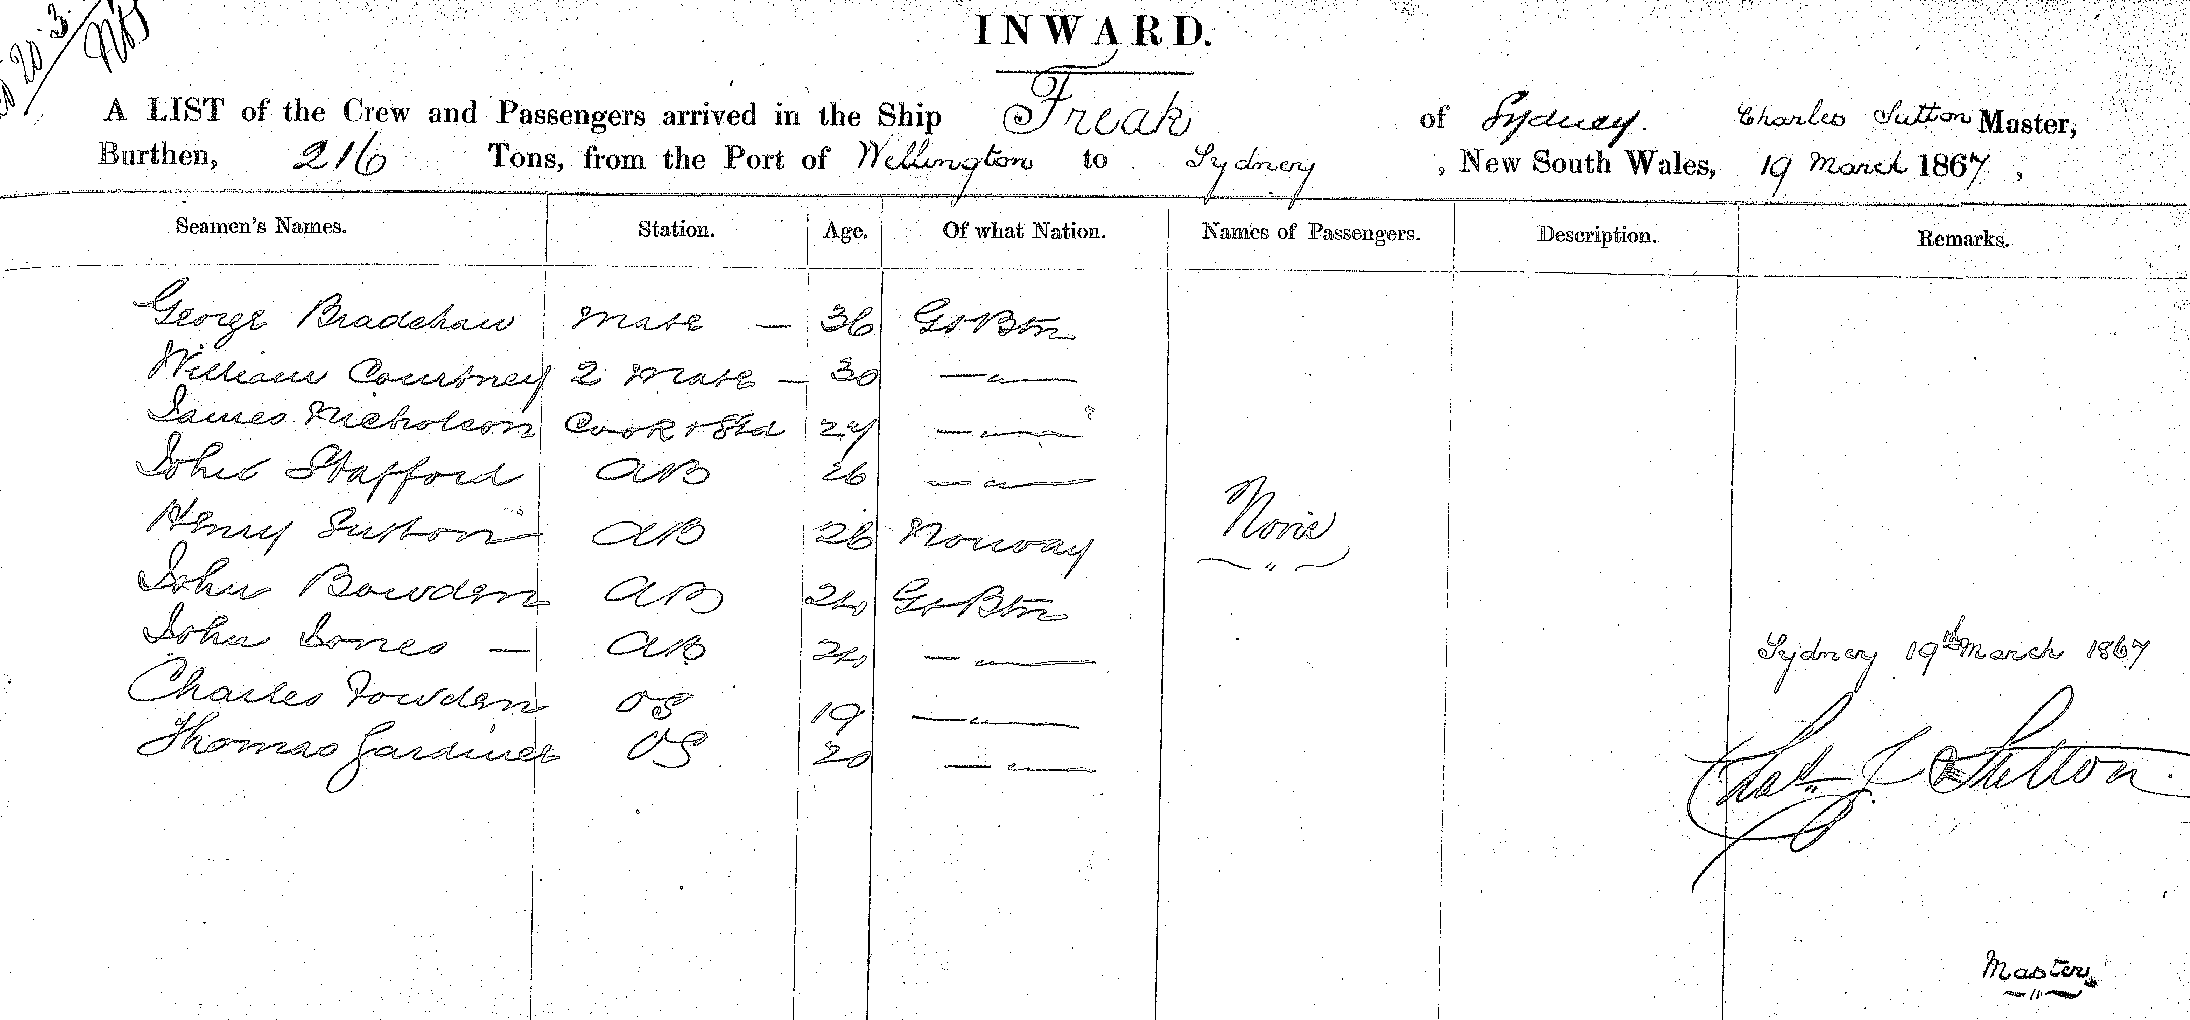 20.3
INWARD.
A LIST of the Crew and Passengers arrived in the Ship Freak of Sydney. Charles Sutton Master,
Burthen, 216 Tons, from the Port of Wellington to Sydney, New South Wales, 19 March 1867,
Seamen's Names. Station. Age. Of what Nation. Names of Passengers. Description. Remarks.
George Bradshaw Mate — 36 Gt Btn
William Courtney 2 Mate — 30 — " —
James Nicholson Cook & Std — " —
John Stafford AB 26 — " —
Henry Sutton AB 26 Norway None
John Bowden AB Gt Btn
John Jones — AB — " —
Sydney 19th March 1867
Charles Fowden OS 19 — " —
Thomas Gardiner OS 20 — " —
Chas. J. Sutton.
Master